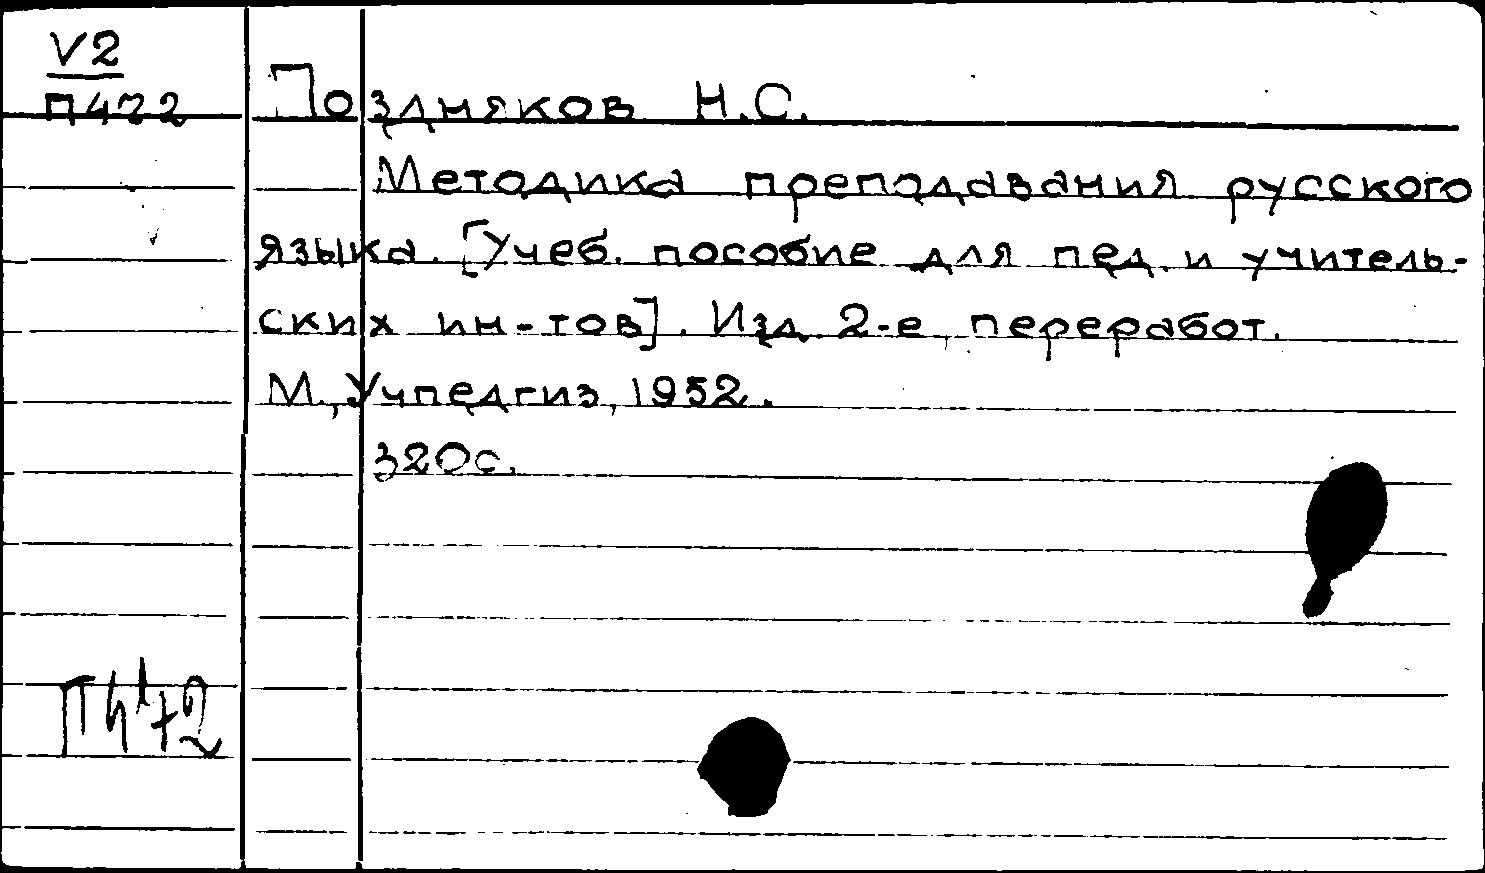 V2
П472 Поздняков Н.С.
Методика преподавания русского
языка. [Учеб. пособие для пед. и учитель-
ских ин-тов]. Изд. 2-е, переработ.
М., Учпедгиз, 1952.
320с.
П472